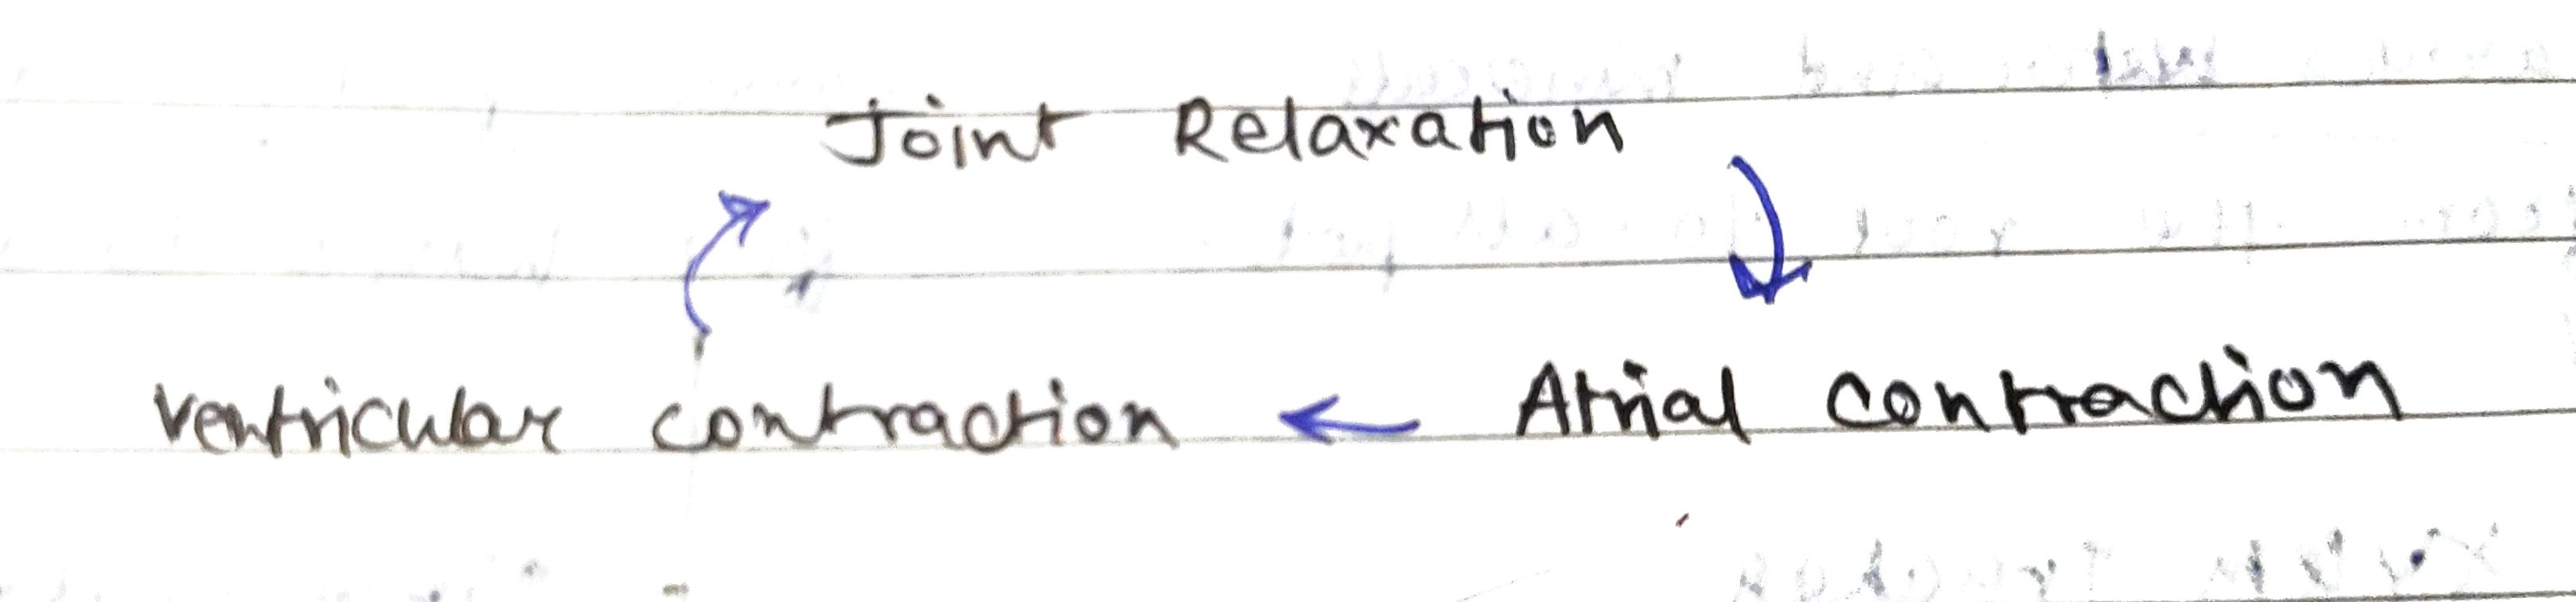 Joint Relaxation
ventricular contraction ← Atrial contraction